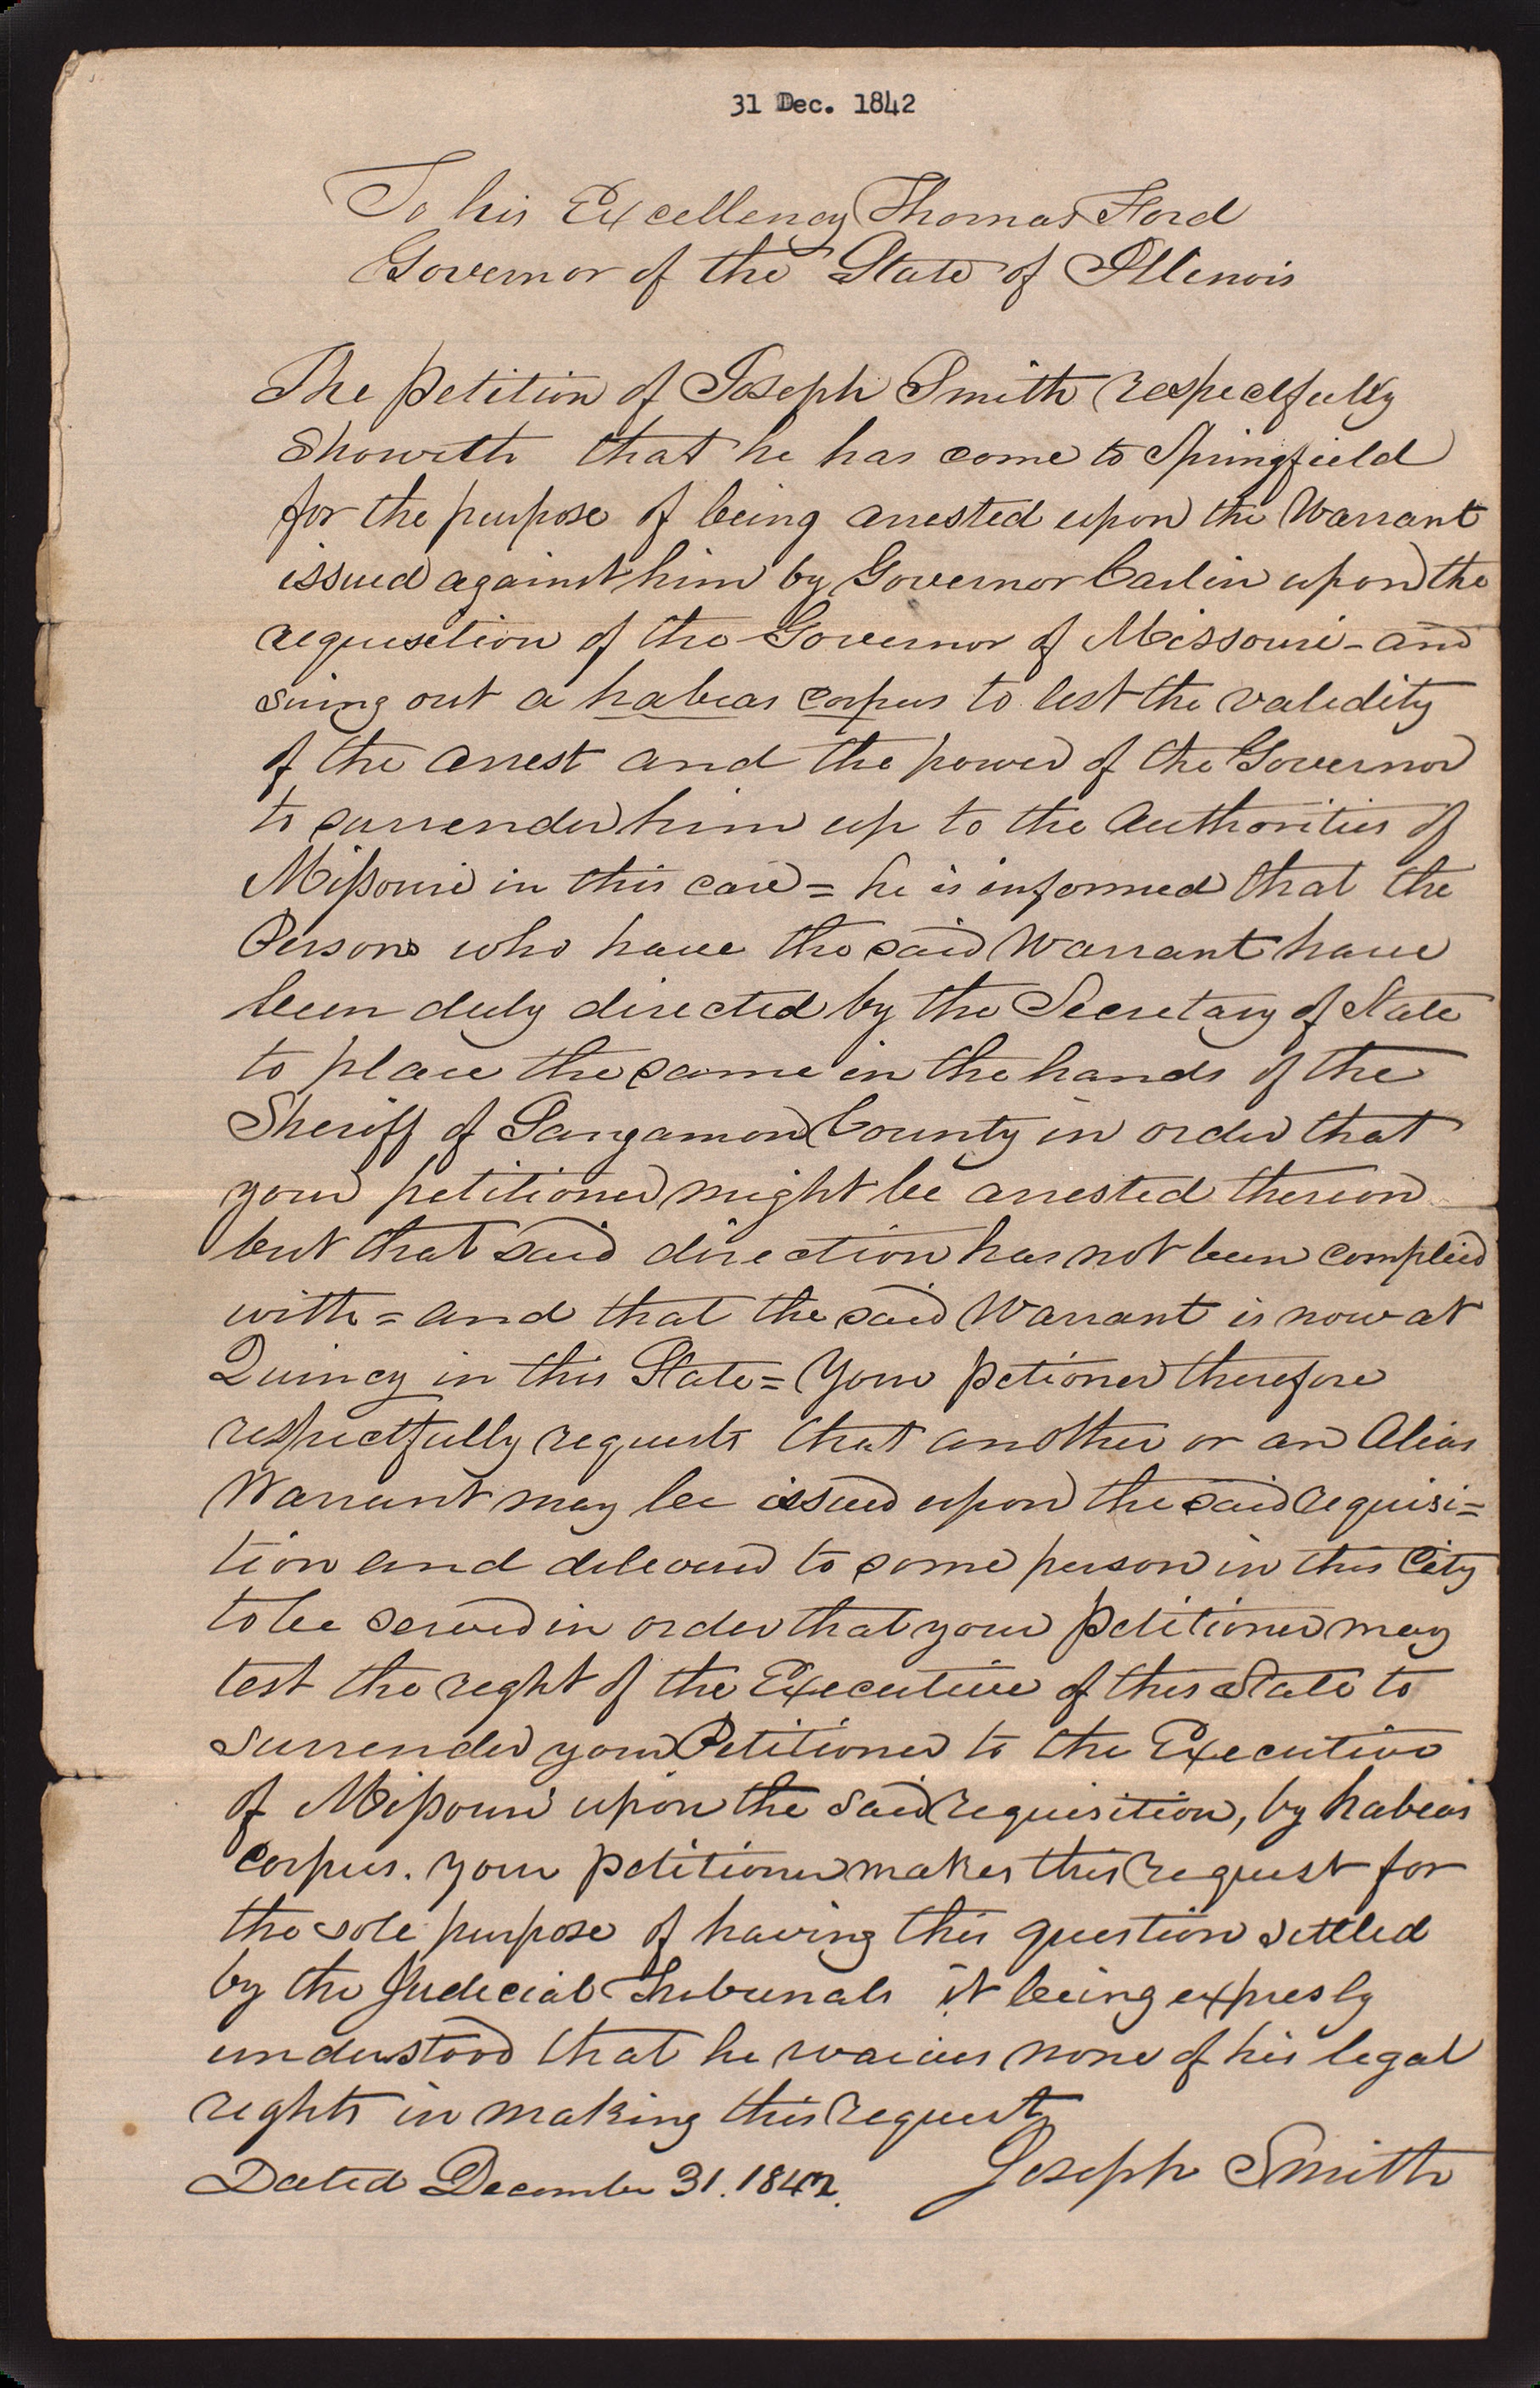 31 Dec. 1842
To his Excellency Thomas Ford
Governor of the State of Illinois
The Petition of Joseph Smith respectfully
Showeth that he has come to Springfield
for the purpose of being arrested upon the Warrant
issued against him by Governor Carlin upon the
requisition of the Governor of Missouri - and
suing out a habeas corpus to test the validity
of the arrest and the power of the Governor
to surrender him up to the Authorities of
Missouri in this case = he is informed that the
Persons who have the said Warrant have
been duly directed by the Secretary of State
to place the same in the hands of the
Sheriff of Sangamon County in order that
your petitioner might be arrested thereon
but that said direction has not been complied
with = and that the said Warrant is now at
Quincy in this State = Your Petioner therefore
respectfully requests that another or an Alias
Warrant may be issued upon the said requisi=
tion and delivered to some person in this City
to be served in order that your Petitioner may
test the right of the Executive of this State to
surrender your Petitioner to the Executive
of Missouri upon the said requisition, by habeas
corpus. Your Petitioner makes this request for
the sole purpose of having this question settled
by the Judicial Tribunals it being expresly
understood that he waives none of his legal
rights in making this request
Joseph Smith
Dated December 31. 1842.